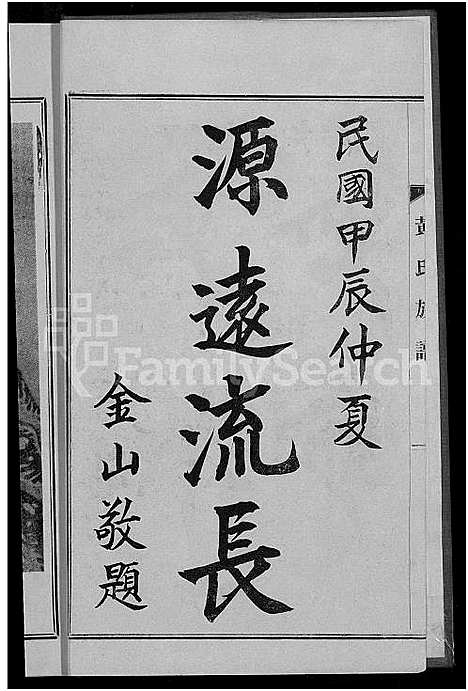 黃氏族譜
民國甲辰仲夏
源遠流長
金山敬題
FamilySearch